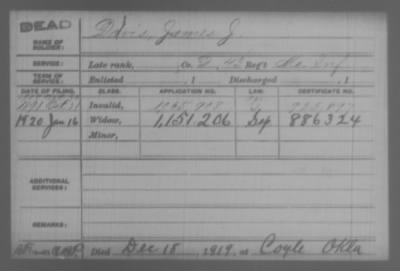 DEAD
NAME OF SOLDIER: Davis, James J.
SERVICE: Late rank, Co. D, 43 Reg't Mo. Inf
TERM OF SERVICE: Enlisted , 1 Discharged , 1
DATE OF FILING. CLASS. APPLICATION NO. LAW. CERTIFICATE NO.
1891 Oct 31 Invalid,
1920 Jan 16 Widow, 1,151,206 Sep 886324
Minor,
ADDITIONAL SERVICES:
REMARKS:
Died Dec 18, 1919, at Coyle Okla